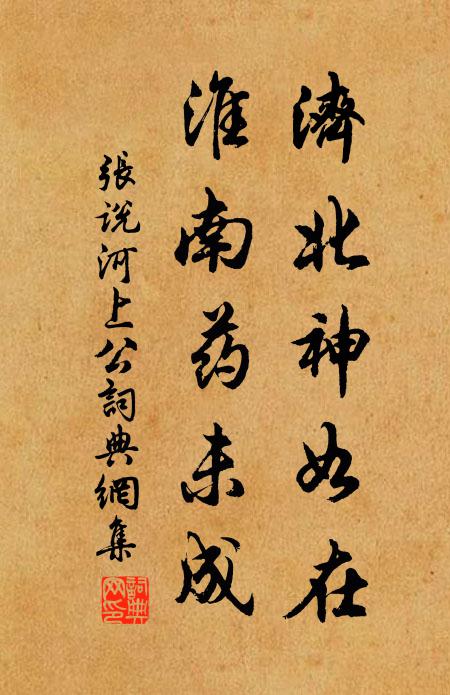 濟北神如在
淮南药未成
張说河上公詞典網集
詞典网印